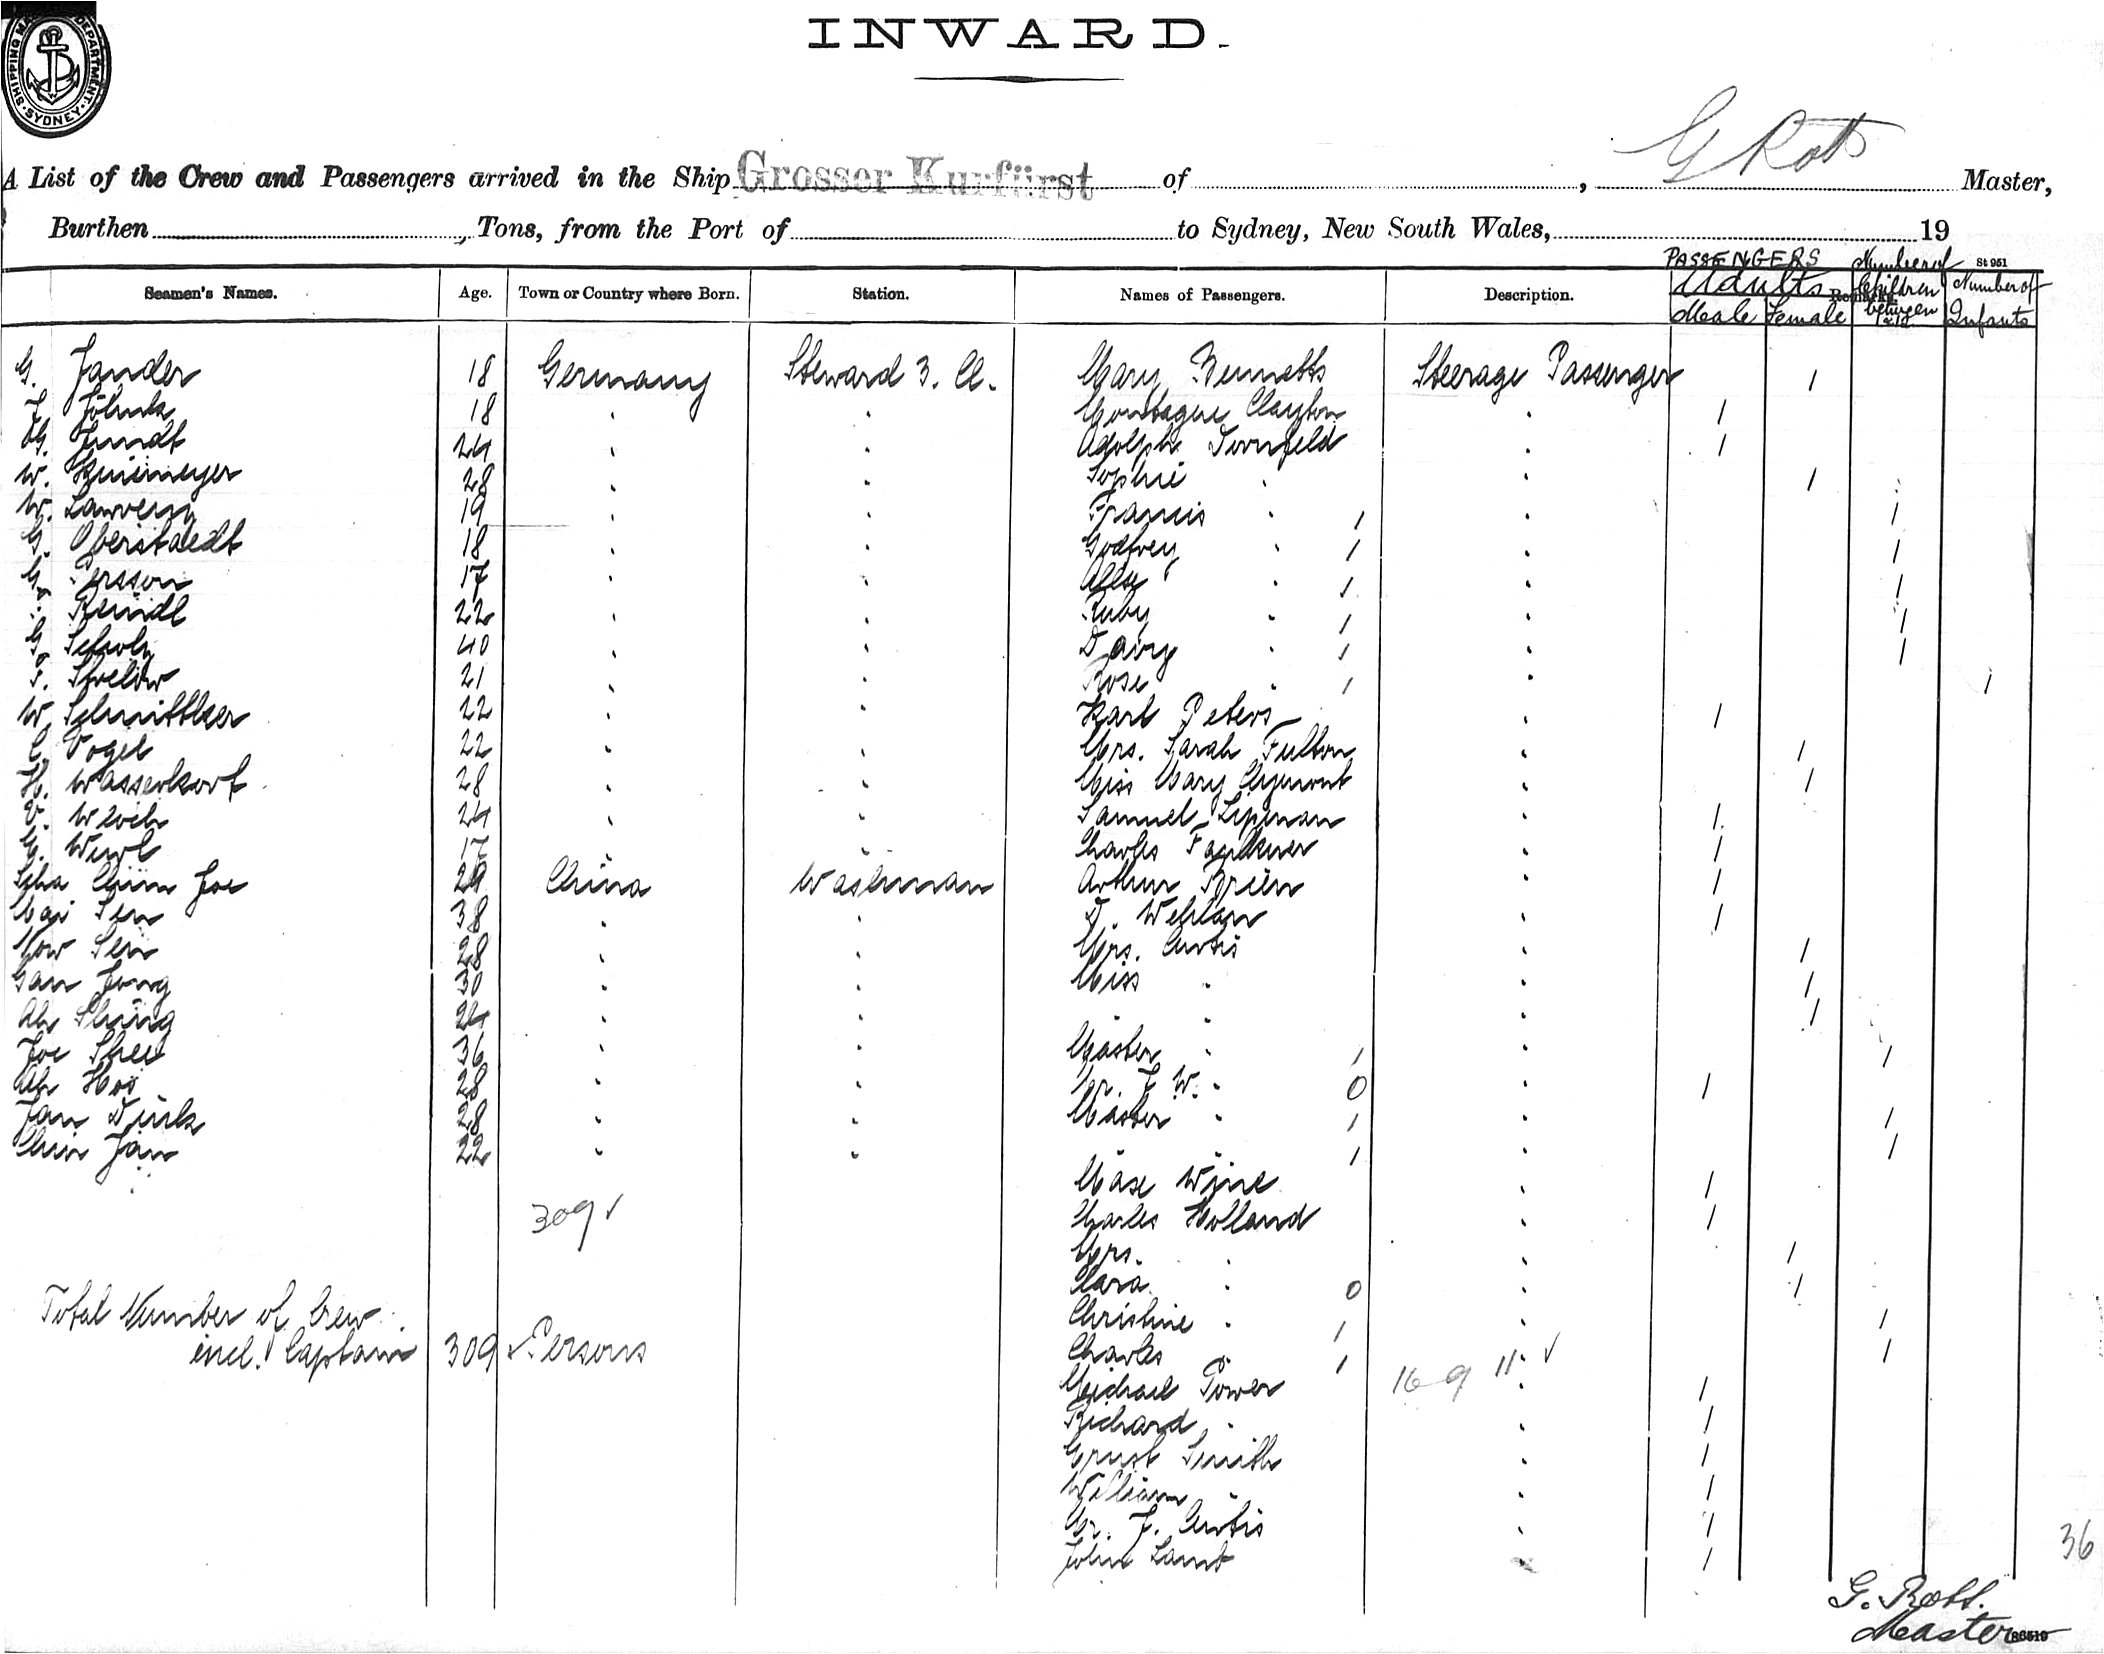 SHIPPING MA DEPARTMENT. SYDNEY
INWARD.
A List of the Crew and Passengers arrived in the Ship Grosser Kurfürst of , G Rott Master,
Burthen , Tons, from the Port of to Sydney, New South Wales, 19
PASSENGERS Number of St 951
Seamen's Names. Age. Town or Country where Born. Station. Names of Passengers. Description. Adults Remarks. Children between Number of Infants
Male Female
G. Jander 18 Germany Steward 3. Cl. Mary Bennetts Steerage Passenger 1
18 " " Montague Clayton " 1
24 " " Adolph Dornfeld " 1
W. 28 " " Sophie " " 1
W. 19 " " Francis " 1 " 1
G. Oberstaedt 18 " " Godfrey " 1 " 1
G. Persson 17 " " " 1 " 1
Reindl 22 " " Ruby " 1 " 1
G. Scholz 40 " " Daisy " 1 " 1
21 " " Rose " 1 " 1
W. Schmittker 22 " " Karl Peters " 1
Vogel 22 " " Mrs. Sarah Fulton " 1
H. Wasserkort 28 " " Miss Mary " 1
24 " " Samuel Lipman " 1
17 " " Charles Faulkner " 1
Joe 29 China Washman Arthur Brien " 1
Sen 38 " " D. Wehlan " 1
Sen 28 " " Mrs. Curtis " 1
Gan Jong 30 " " Miss " " 1
Ah Shing 24 " " " " " 1
Joe Shee 36 " " Master " 1 " 1
Ah Hoi 28 " " Mr. J W. " 0 " 1
Jan Dirck 28 " " Master " 1 " 1
Chin Jan 22 " " " " 1 " 1
Wine " 1
309 ✓ Charles Holland " 1
Mrs. " " 1
Clara " 0 " 1
Total Number of Crew Christine " 1 " 1
incl. Captain 309 ✓ Persons Charles " 1 16 9 11 " ✓ 1
Michael Power " 1
Richard " " 1
Ernst Smith " 1
William " " 1
Mr. J. Curtis " 1
John Lamb " 1
36
G. Rott.
Master
86519